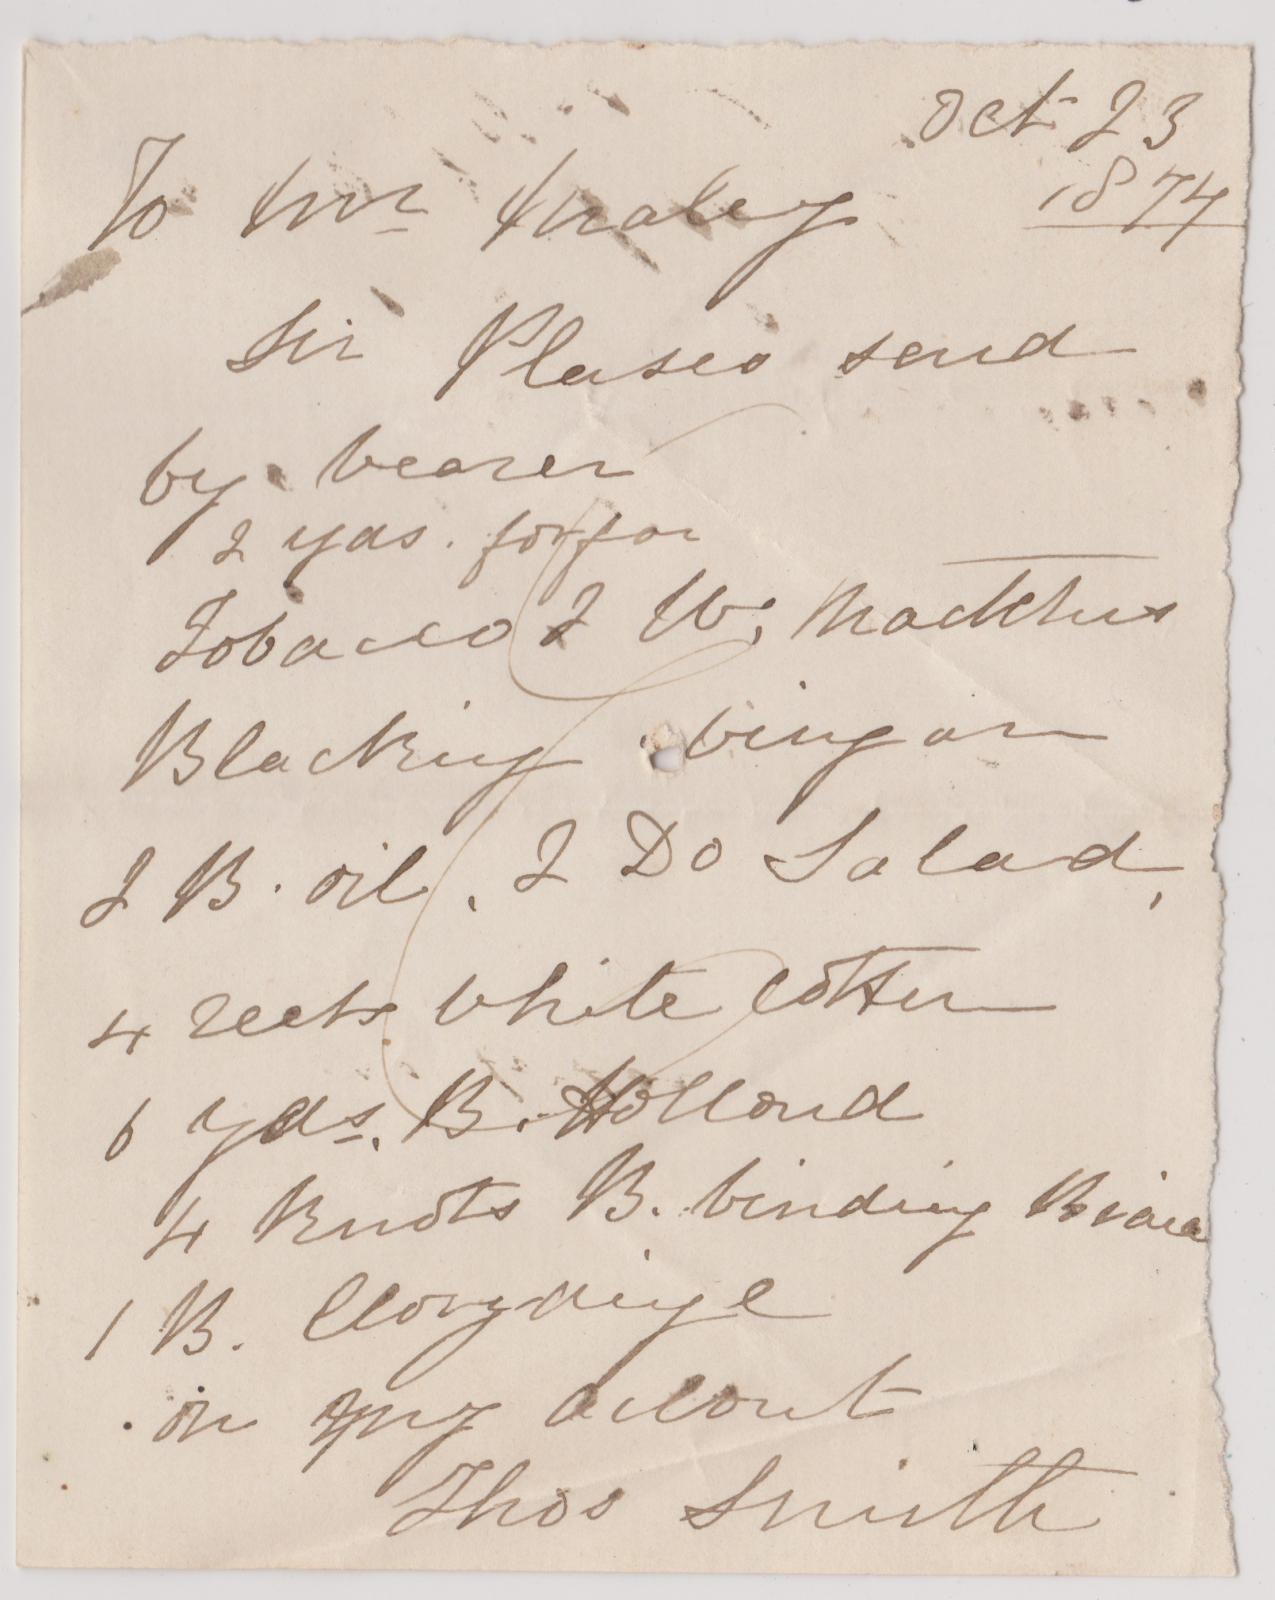 Oct 23
1874
To Mr
Sir Plases send
by bearer
2 yds. for for
Tobacco 2 W. Matthus
Blacking vingar
2 B. oil, 2 Do Salad,
4 reels white Cotten
6 yds. B. Holland
4 Knots B. binding
1 B.
on my acount
Thos Smith